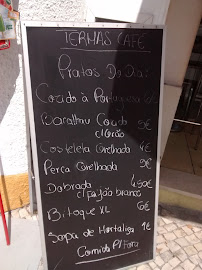 TERMAS CAFÉ
Pratos Do Dia:
Cozido à Portuguesa
Bacalhau Cozido
c/ Grão 9€
Costeleta Grelhada 7€
Perca Grelhada 7€
Dobrada 4,50€
c/ feijão branco
Bitoque XL 6€
Sopa de Hortaliça 1€
Comida P/ Fora